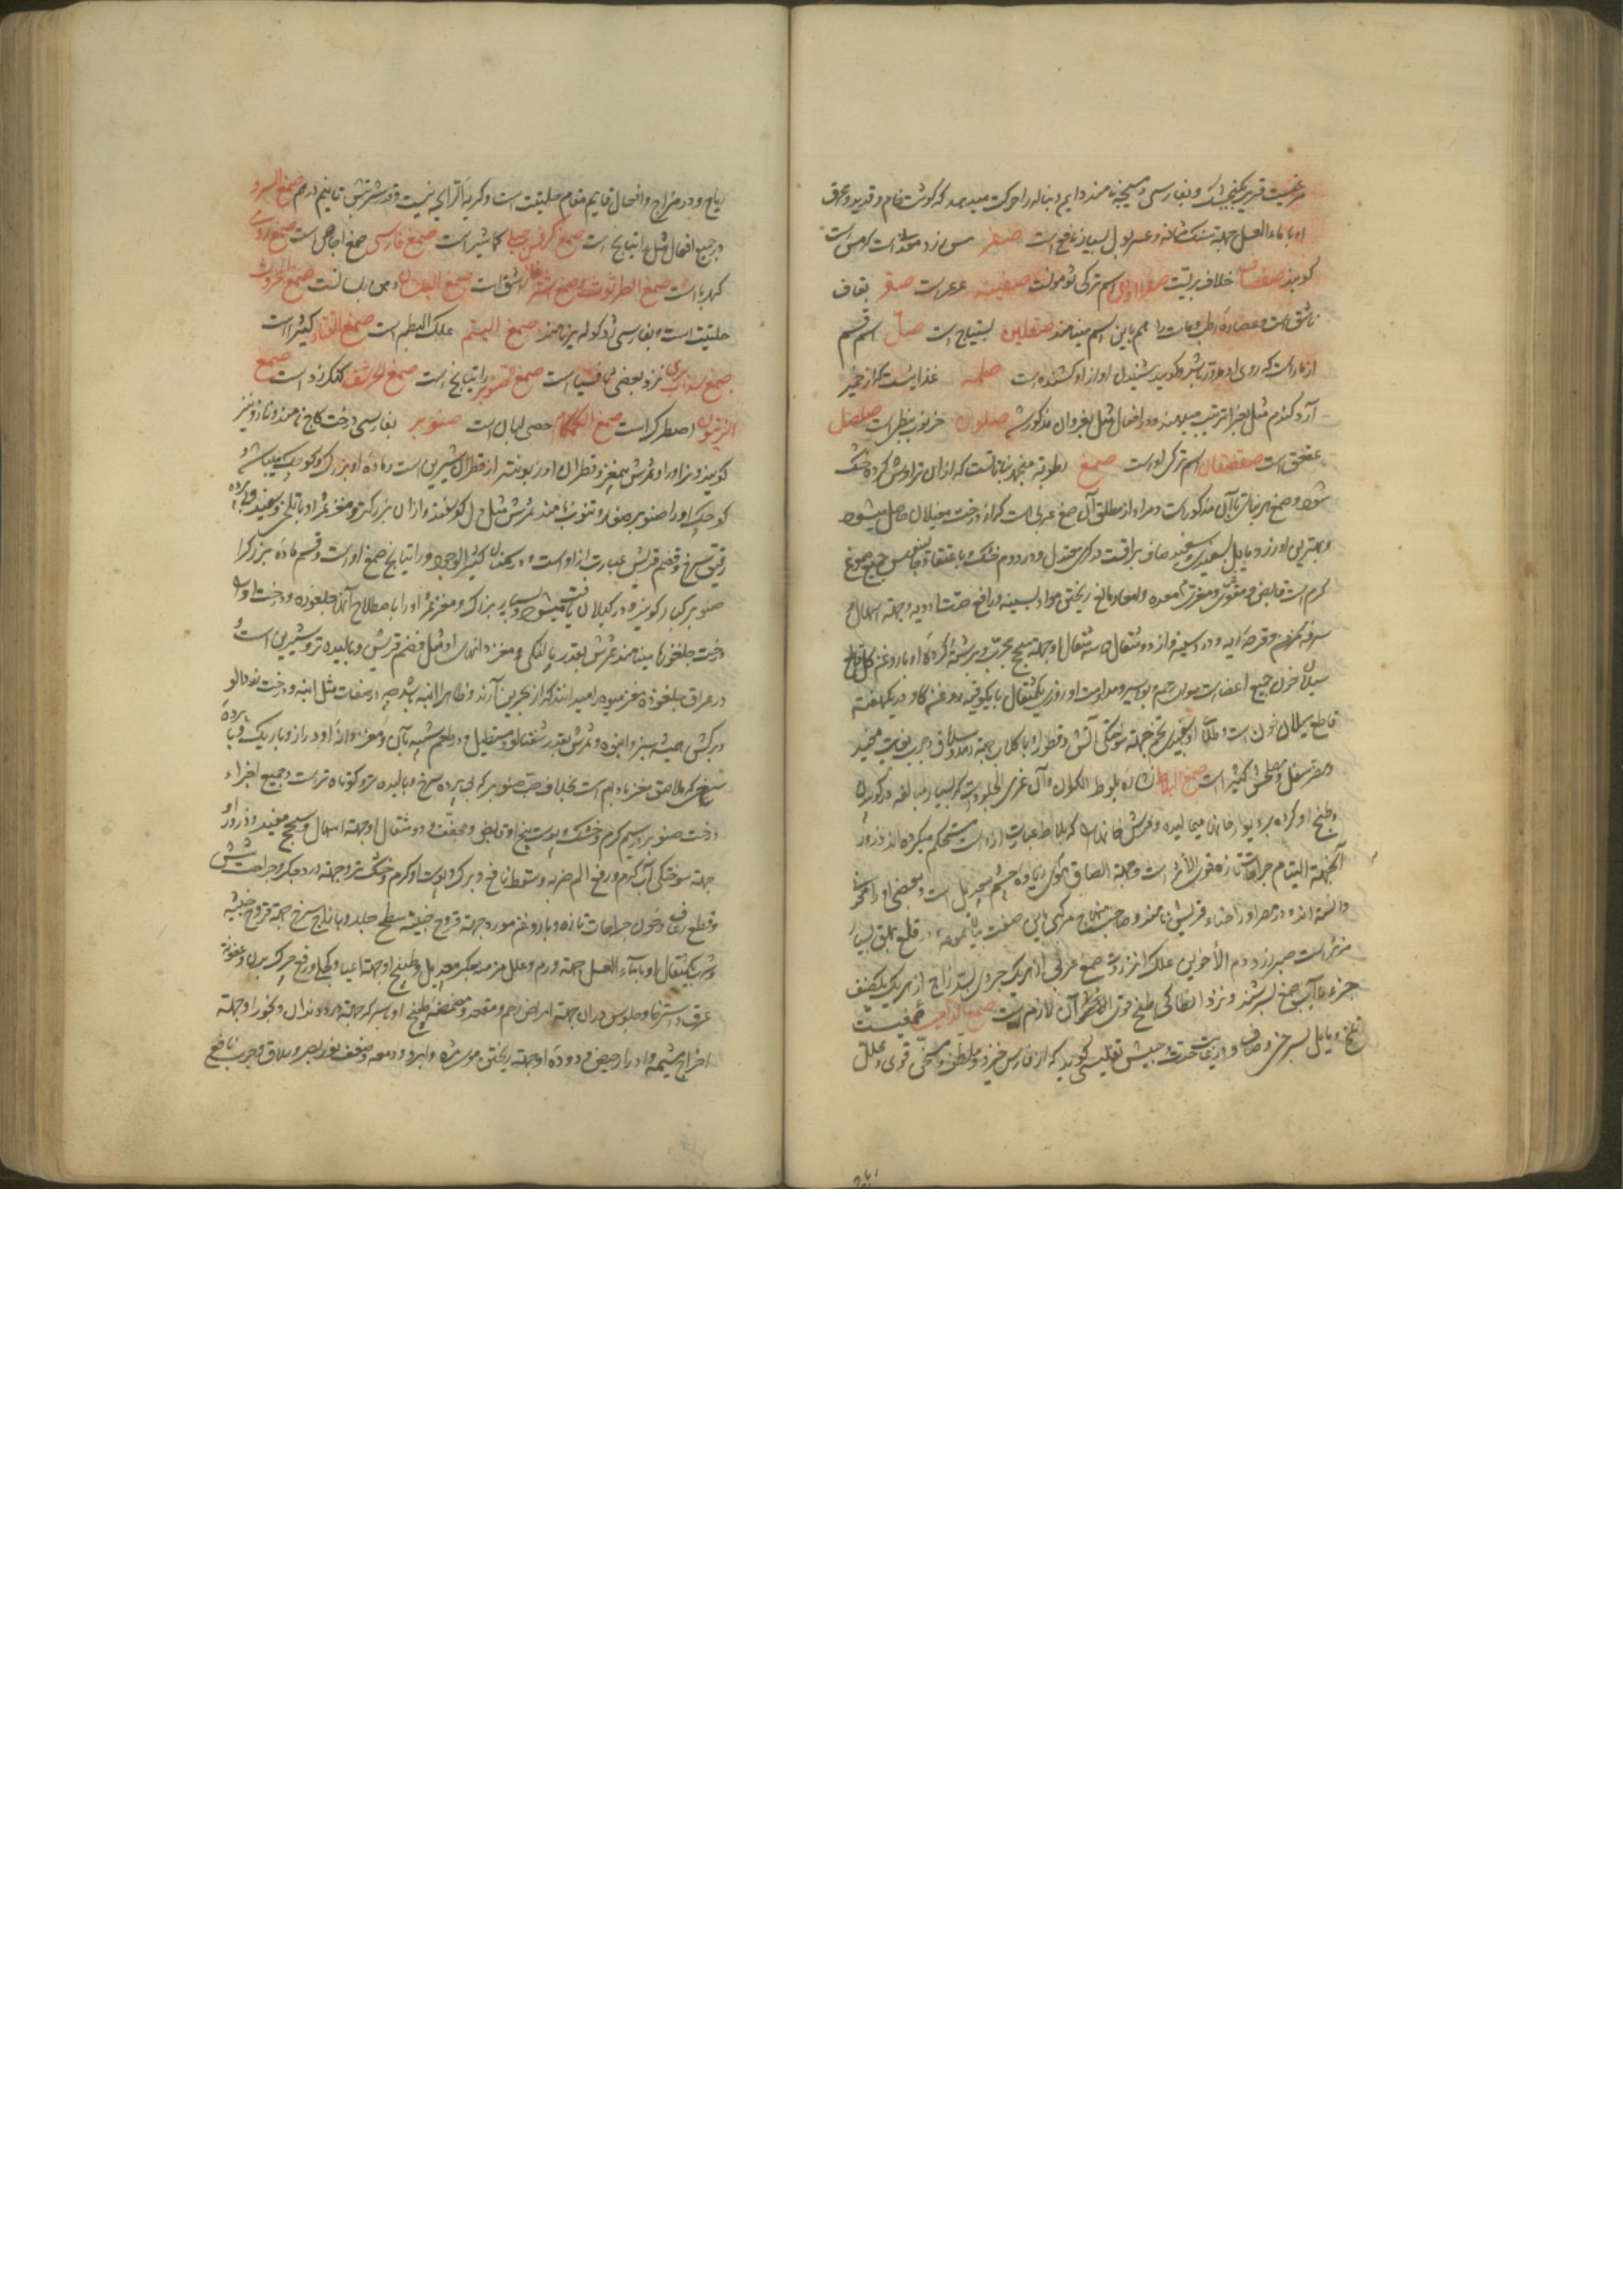 مرغیست قریب بکنجشک و بفارسی دم سیجه نامند و دایم دنباله را حرکت میدهد که گوشت خام و قدید و عرق
او با ماء العسل جهة سنک مثانه و عسر بول بسیار نافع است صفر مس زرد معدنی است که مس است
کویند صفصاف خلاف بریست اسم ترکی ثومونست صفینه عرعر است صقر بقاف
است و عصاره رطوبات را هم باین اسم مینامند صقلین لبنیاج است صل اسم قسم
از مار است که روی او مدور باشد و کویند شنیدن اواز او کشنده است صلمه غذائیست که از خمیر
آرد کندم مثل بغرا ترتیب میدهند و در افعال مثل بغرا و ان مذکور شد صلون خرنوب نبطی است صلصل
عقعق است صقصقان اسم ترکی او است صمغ رطوبة منجمد نباتاتست که از ان تراوش کرده خشک
شود و صمغ هر نبات با آن مذکور است و مراد از مطلق آن صمغ عربی است که از درخت مغیلان حاصل میشود
و بهترین او زرد مایل بسفیدی و سفید صاف براقست در کرمی معتدل و در دوم خشک و باعتقاد بعضی جمیع صموغ
کرم است قابض و مقوی و مغری معده و امعا و مانع ریختن مواد بسینه و رافع حدت ادویه و جهة اسهال
سرفه کرم و قرحه ریه و درد سینه و از دو مثقال تا سه مثقال او جهة سحج مجرب و برشته کرده او با روغن کل قاطع
سیلان خون جمیع اعضا است سوای رحم و بواسیر و مداومت او روزی یکمثقال با یکوقیه روغن کاو در یکهفته
قاطع سیلان خون است و طلای او با سفیدی تخم جهة سوختکی آتش و قطور او با کلاب جهة رمد و سلاق و جرب بغایت مفید
و مضر سفل و مصلحش کتیرا است صمغ البلاط نشاره بلوط الکلان و آن غری الجلود است که بسیار مبالغه در کوبیدن
و طبخ او کرده بر دیوار خانها میمالیده و فرش خانها که بلاط عبارت از انست مستحکم میکرده اند ذرور
آن جهة التیام جراحات تازه قوی الاثر است و جهة الصاق موی زیاده چشم بیعدیل است و بعضی او را مخدر
دانسته اند و در مصر او را حناء قریش نامند و صاحب منهاج مرکبی باین صفت بیان نموده که در قلع بهق بسیار
مؤثر است صبر زرد دم الأخوین علک انزروت صمغ عربی از هر یک جزوی زاج از هر یک نصف
جزء با آب صمغ بسرشند و نزد انطاکی طبخ قوی آن لازم است صمغ الداب صمغیست
تلخ و مایل بسرخی و صاف و از غایت حدت حبیش تفلیسی کوید که از فارس خیزد و ملطف و مسخن قوی و محلل
ریاح و در مزاج و افعال قایم مقام حلتیت است و کریه الرایحه نیست و قدر شربتش تا نیم درم صمغ السرو
در جمیع افعال مثل راتیانج است صمغ کرفس جبلی کماشیر است صمغ فارسی صمغ اجاص است صمغ رومی
کهرباست صمغ الطرثوث و صمغ اشق است صمغ البلسان دهن بلسانست صمغ المحروث
حلتیت است و بفارسی ژد کوله پر نامند صمغ البطم علک البطم است صمغ القتاد کتیرا است
صمغ سداب بری نزد بعضی ثافسیا است صمغ الصنوبر راتیانج است صمغ الحرشف کنکرزد است صمغ
الزیتون اصطرک است صمغ الکمکام حصی لبان است صنوبر بفارسی درخت کاج نامند و ناژو نیز
کویند و نر او را و ثمرش بیمغز و قطران او زبون تر از قطران شربین است و ماده او بزرک و کوچک میباشد
کوچک او را صنوبر صغار و تنوب نامند ثمرش مثل دل کوسفند و ازان بزرکتر و مغز ثمر او با تلخی و سفید و پرده
رقیق سرخ و قضم قریش عبارت از او است و در تنکابن کثیر الوجود و راتیانج صمغ او است و قسم ماده بزرک را
صنوبر کبار کویند و در کیلان یافت میشود و بسیار بزرک و مغز ثمر او را با صطلاح آنجا چلغوزه و درخت او را
درخت چلغوزه مینامند ثمرش بقدر بالنکی و مغز دانهای او مثل قضم قریش و بالیده تر و شیرین است
در عراق چلغوزه مغز میوه را میدانند که از بحرین آرند و ظاهرا انبه باشد چه در صفات مثل انبه و درخت نودالو
و برکش همیشه سبز و انبوه و ثمرش بقدر شفتالو و مستطیل و در طعم شبیه بآن و مغز دانه او دراز و باریک و با پرده
سرخی که ملاصق مغز بادام است بخلاف حب صنوبر که بی پرده سرخ و بالیده تر و کوتاه تر است و جمیع اجزاء
درخت صنوبر در سیم کرم و خشک و پوست بیخ او قابض و مجفف و دو مثقال او جهة اسهال و سحج مفید و ذرور او
جهة سوختکی آب کرم و رفع الم ضربه و سقطه نافع و برک و پوست او کرم و خشک تر و جهة درد جکر و جراحت شش
و قطع رعاف و خون جراحات تازه و با روغن مورد جهة قروح خبیثه سطح جلد و با زاج سرخ جهة قروح خبیثه
و شرب یکمثقال او با ماء العسل جهة ورم و علل مزمنه جکر بیعدیل و طبیخ او جهة اعیا و کچلی و رفع چرک بدن و عفونة
عرق و استرخا و جلوس در ان جهة امراض رحم و مقعد و مضمضه طبیخ او با سرکه جهة درد دندان و بخور او جهة
اخراج مشیمه و ادرار حیض و دوده او جهة ریختن موی مژه و ابرو و دمعه و ضعف بصر و سلاق و جرب نافع